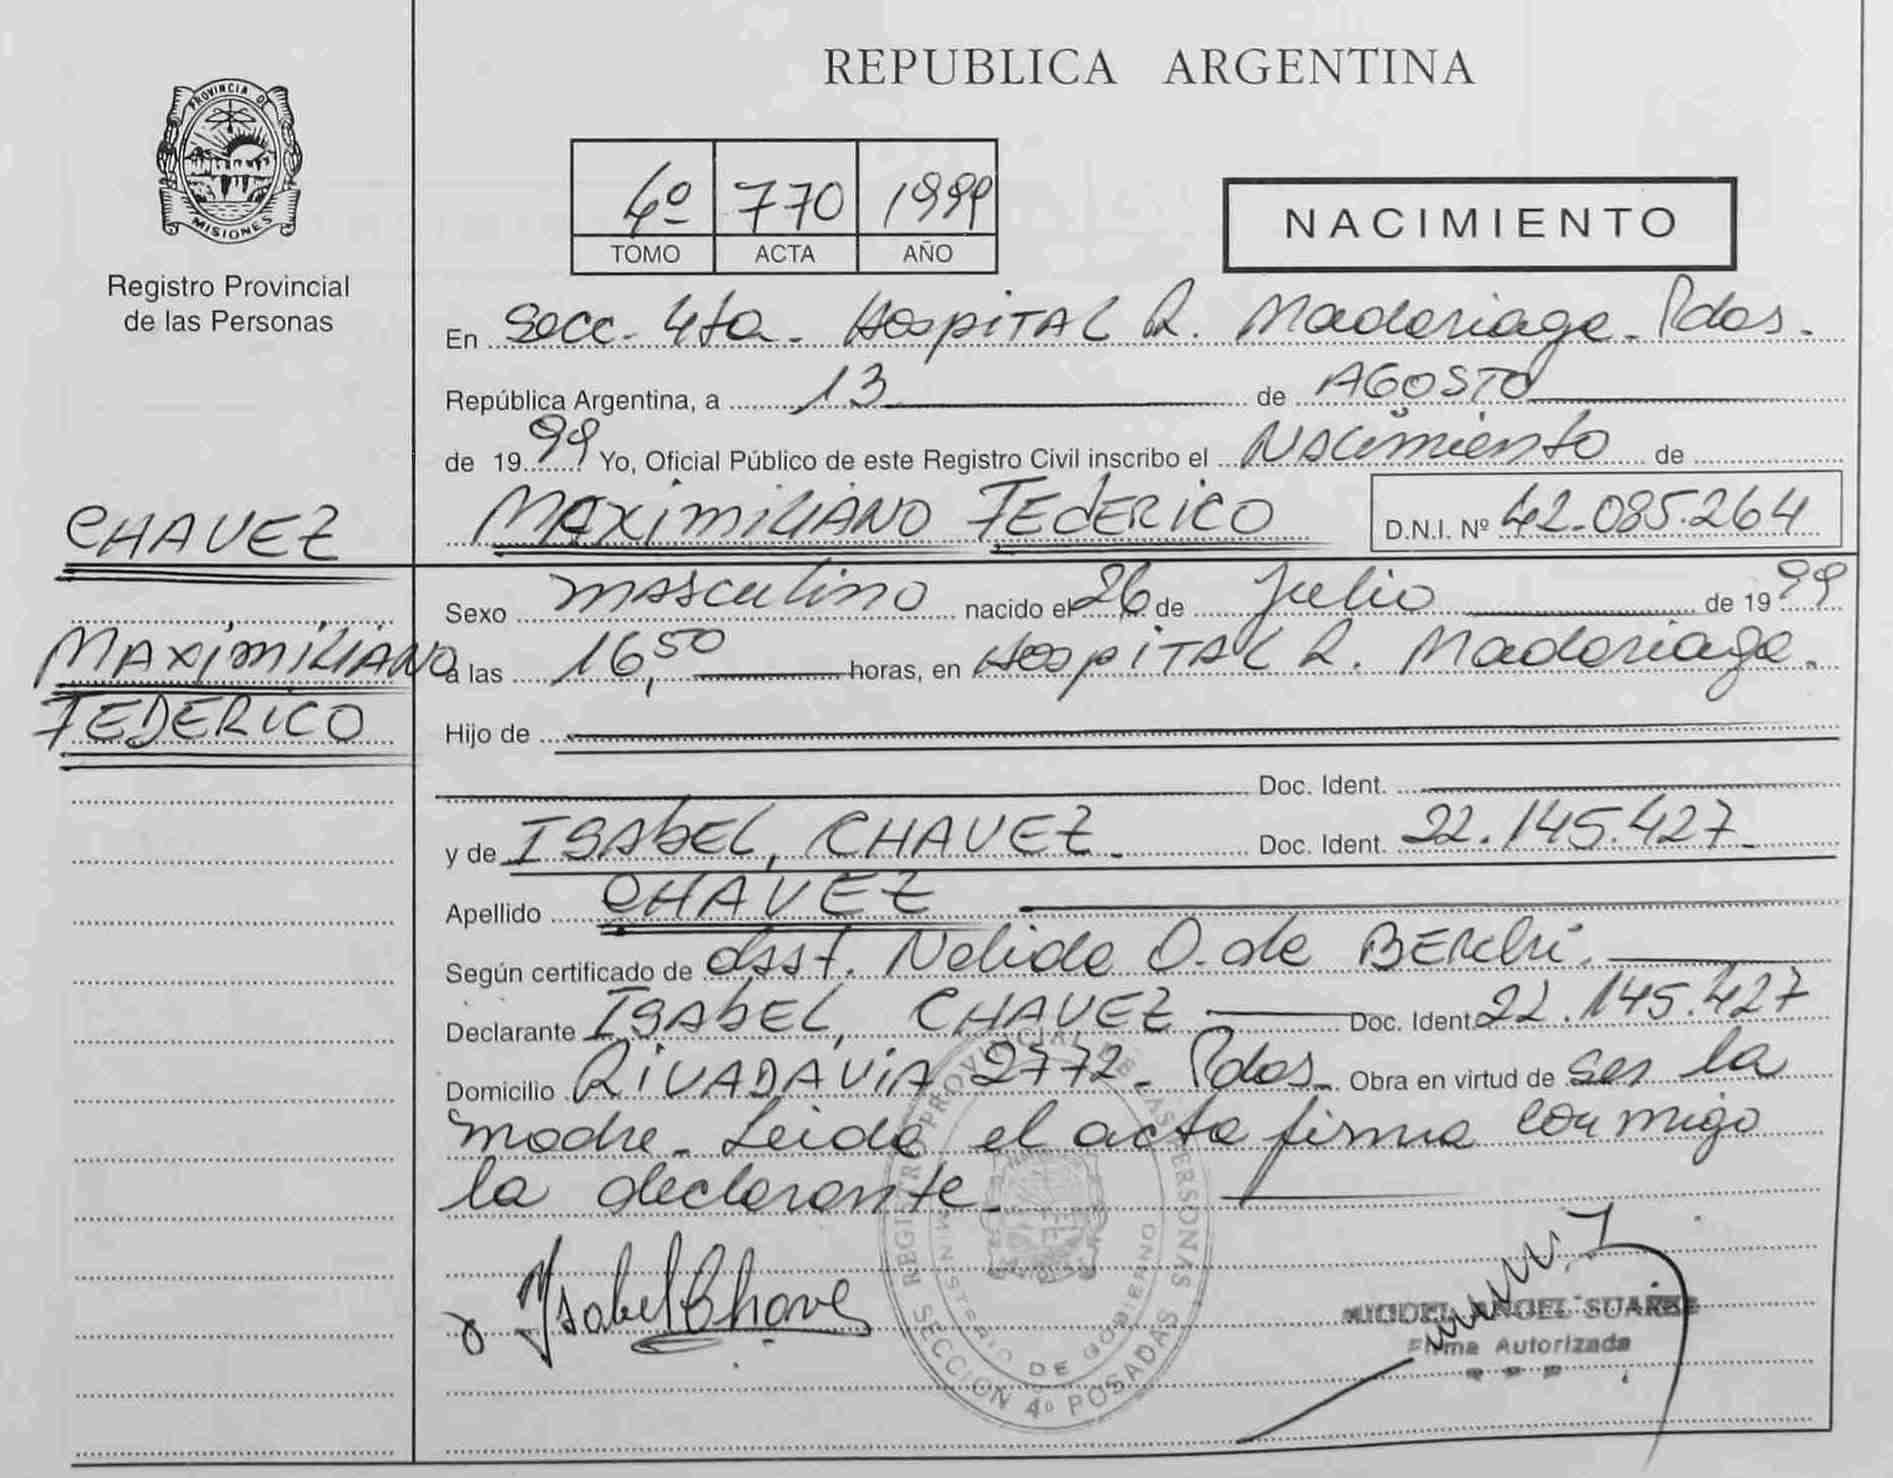 REPUBLICA ARGENTINA
PROVINCIA DE
MISIONES
Registro Provincial
de las Personas
4º 770 1999
TOMO ACTA AÑO
NACIMIENTO
En Secc. 4ta. Hospital R. Madariaga. Pdas.
República Argentina, a 13 de AGOSTO
de 1999 Yo, Oficial Público de este Registro Civil inscribo el Nacimiento de
MAXIMILIANO FEDERICO D.N.I. Nº 42.085.264
CHAVEZ
MAXIMILIANO
FEDERICO
Sexo masculino nacido el 26 de Julio de 1999
a las 16,50 horas, en Hospital R. Madariaga.
Hijo de
Doc. Ident.
y de ISABEL, CHAVEZ. Doc. Ident. 22.145.427
Apellido CHAVEZ
Según certificado de Nelida O. de
Declarante ISABEL, CHAVEZ Doc. Ident. 22.145.427
Domicilio RIVADAVIA 2772. Pdas. Obra en virtud de ser la
madre. Leida el acta firma conmigo
la declarante.
Isabel Chave
REGISTRO PROVINCIAL DE LAS PERSONAS
MINISTERIO DE GOBIERNO
SECCION 4º POSADAS
MIGUEL ANGEL SUAREZ
Firma Autorizada